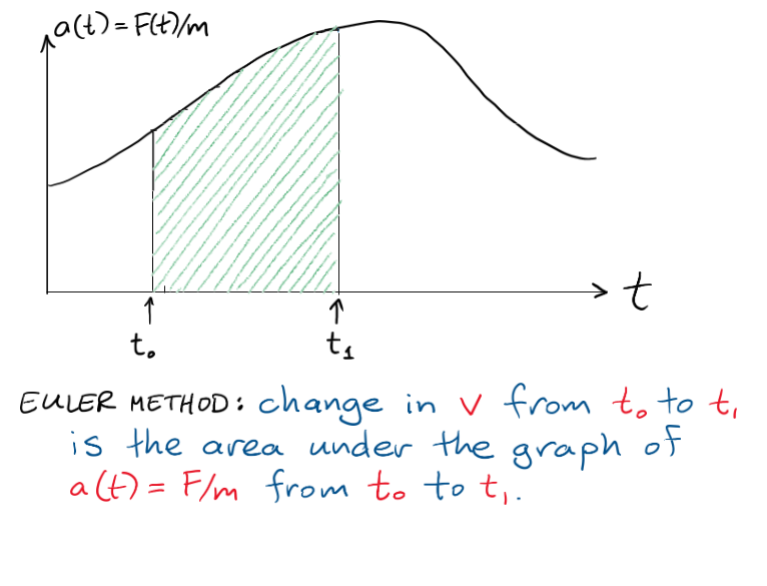 a(t) = F(t)/m
t
t₀
t₁
EULER METHOD: change in v from t₀ to t₁
is the area under the graph of
a(t) = F/m from t₀ to t₁.